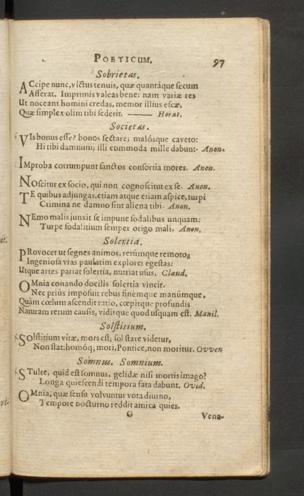 POETICUM. 97
Sobrietas.
ACcipe nunc, victus tenuis, quæ quantáque secum
Afferat. Imprimis valeas bene: nam variæ res
Ut noceant homini credas, memor illius escæ,
Quæ simplex olim tibi sederit. —— Horat.
Societas.
VIs bonus esse? bonos sectare; malósque caveto:
Hi tibi damnum; illi commoda mille dabunt. Anon.
IMproba corrumpunt sanctos consortia mores. Anon.
NOscitur ex socio, qui non cognoscitur ex se. Anon.
TE quibus adjungas, etiam atque etiam aspice, turpi
Crimina ne damno sint aliena tibi. Anon.
NEmo malis junxit se impune sodalibus unquam:
Turpe sodalitium semper origo mali. Anon.
Solertia.
PRovocet ut segnes animos, rerúmque remotas
Ingeniosa vias paulatim exploret egestas:
Utque artes pariat solertia, nutriat usus. Claud.
OMnia conando docilis solertia vincit.
Nec prius imposuit rebus finémque manúmque,
Quàm cœlum ascendit ratio, cœpítque profundis
Naturam rerum causis, vidítque quod usquam est. Manil.
Solstitium.
SOlstitium vitæ, mors est; sol stare videtur,
Non stat: homóq; mori, Pontice, non moritur. Owen
Somnus. Somnium.
STulte, quid est somnus, gelidæ nisi mortis imago?
Longa quiescendi tempora fata dabunt. Ovid.
OMnia, quæ sensu volvuntur vota diurno,
Tempore nocturno reddit amica quies.
G Vena-